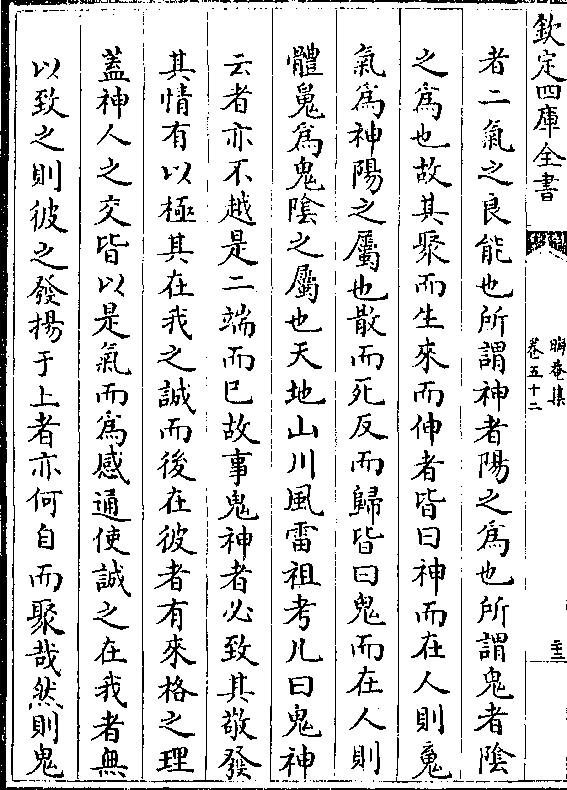 欽定四庫全書
晦菴集
卷五十二
二十三
者二氣之良能也所謂神者陽之爲也所謂鬼者陰
之爲也故其聚而生來而伸者皆曰神而在人則䰟
氣爲神陽之屬也散而死反而歸皆曰鬼而在人則
體䰟爲鬼陰之屬也天地山川風雷祖考凡曰鬼神
云者亦不越是二端而已故事鬼神者必致其敬發
其情有以極其在我之誠而後在彼者有來格之理
蓋神人之交皆以是氣而爲感通使誠之在我者無
以致之則彼之發揚于上者亦何自而聚哉然則鬼